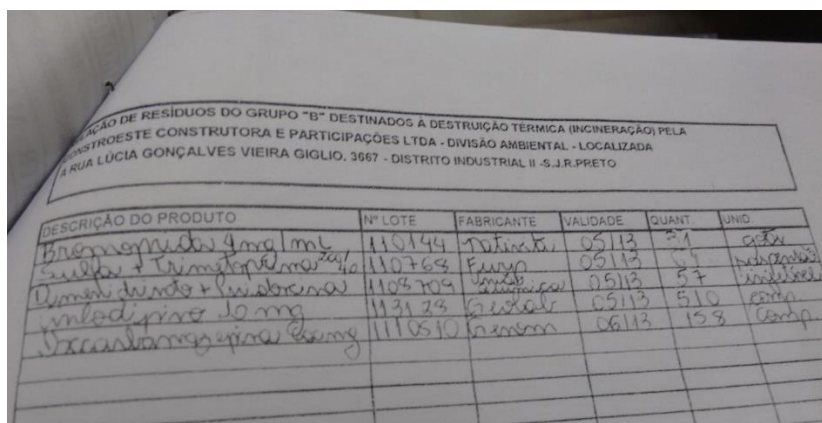 AÇÃO DE RESÍDUOS DO GRUPO "B" DESTINADOS A DESTRUIÇÃO TÉRMICA (INCINERAÇÃO) PELA
CONSTROESTE CONSTRUTORA E PARTICIPAÇÕES LTDA - DIVISÃO AMBIENTAL - LOCALIZADA
A RUA LÚCIA GONÇALVES VIEIRA GIGLIO, 3667 - DISTRITO INDUSTRIAL II -S.J.R.PRETO
DESCRIÇÃO DO PRODUTO Nº LOTE FABRICANTE VALIDADE QUANT. UNID.
Bromoprida 4mg/mL 110144 05/13 gota
Sulfa + Trimetoprima 110768 Furp 05/13
Dimenidrinato + Piridoxina 1108709 União Química 05/13 57 injetável
Amlodipino 10 mg 113128 Geolab 05/13 510 comp.
Oxcarbamazepina 1110510 06/13 158 comp.